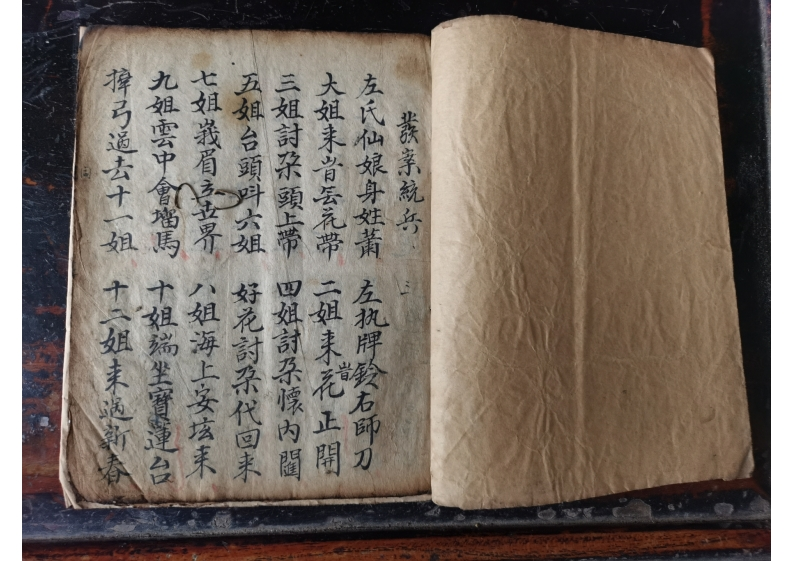 發案統兵
左氏仙娘身姓蕭 左执牌鈴右師刀
大姐来旹去花帶 二姐来旹花正開
三姐討朶頭上帶 四姐討朶懷內
五姐台頭呌六姐 好花討朶代回来
七姐峩眉立世界 八姐海上安坛来
九姐雲中會㙧馬 十姐端坐寳蓮台
弓過去十一姐 十二姐来過新春